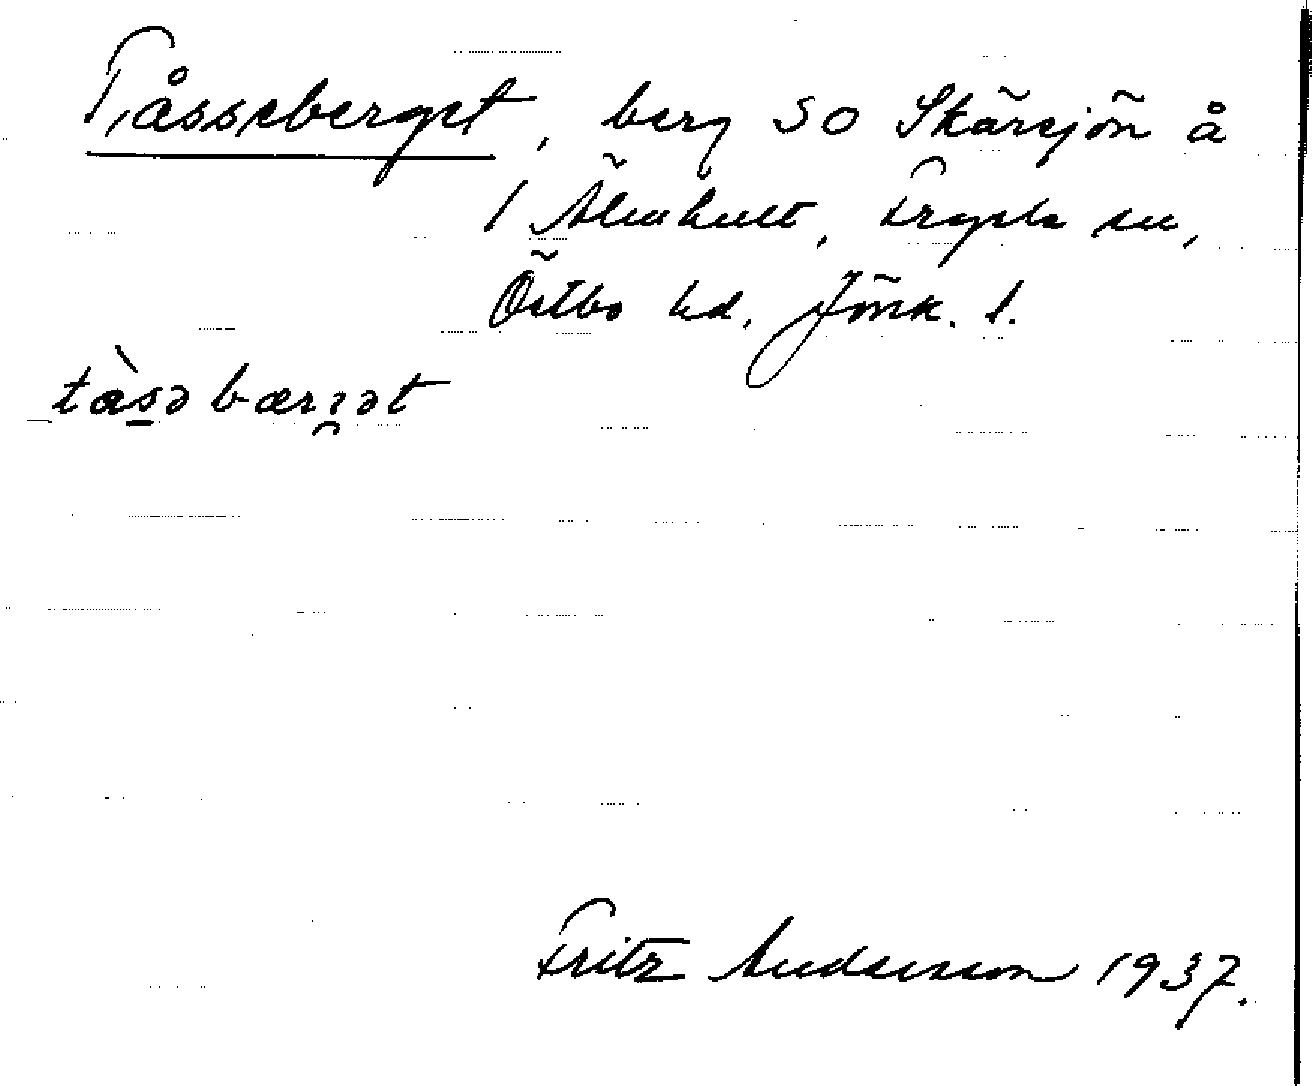 Tåsseberget, berg SO Skärsjön å
1 Älmhult, Fryele sn,
Östbo hd. Jönk. l.
tàsəbærgət
Fritz Andersson 1937.